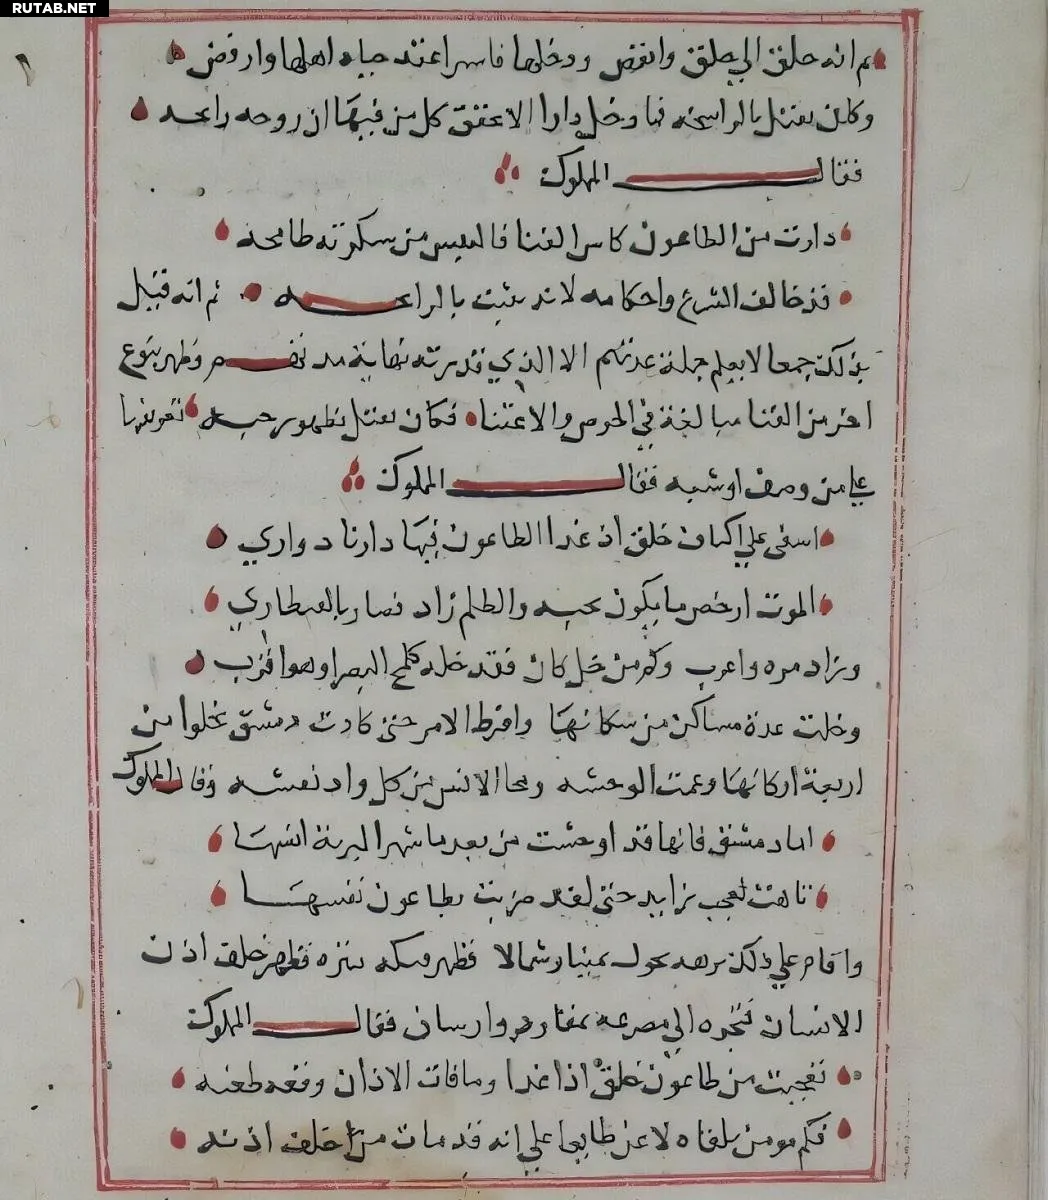 RUTAB.NET
ثم انه حلق الي جلق وانقض ودخلها فاسرا عند جباه اهلها وارفض
وكان يقتل بالرائحه فما دخل دارا الا تحقق كل من فيها ان روحه رائحه
فقال المملوك
دارت من الطاعون كاس الفنا فالنفس من سكرته طافحه
قد خالف الشرع واحكامه لانه يثبت بالرائحه ثم انه قتل
بذلك جمعا لا يعلم جملة عدتهم الا الذي قدر وظهر بنوع
اخر من الفنا مبالغة في الحرص والاعتنا فكان يقتل بظهور حبه
علي من وصف او شبه فقال المملوك
اسفي علي اكناف جلق اذ غدا الطاعون فيها
الموت ارخص ما يكون بحبه والظلم زاد فصار بالقنطاري
وزاد مره واعرب وكم من خل كان فقد خله كلمح البصر او هو اقرب
وخلت عدة مساكن من سكانها وافرط الامر حتي كادت دمشق تخلوا من
اربعة اركانها وعمت الوحشه ومحا الانس من كل واد نعشه وقال المملوك
اما دمشق فانها قد اوحشت من بعد ما شهد البرية انسها
تاهت بعجب زايد حتي لقد ضربت بطاعون نفسها
واقام علي ذلك برهه يجول يمينا وشمالا فظهر خلف اذن
الانسان فيجره الي مصرعه فقال المملوك
تعجبت من طاعون جلق اذا غدا وما فاتت الاذان وقعه طعنه
فكم مومن تلقاه لاعن طايعا علي انه قد مات من خلف اذنه